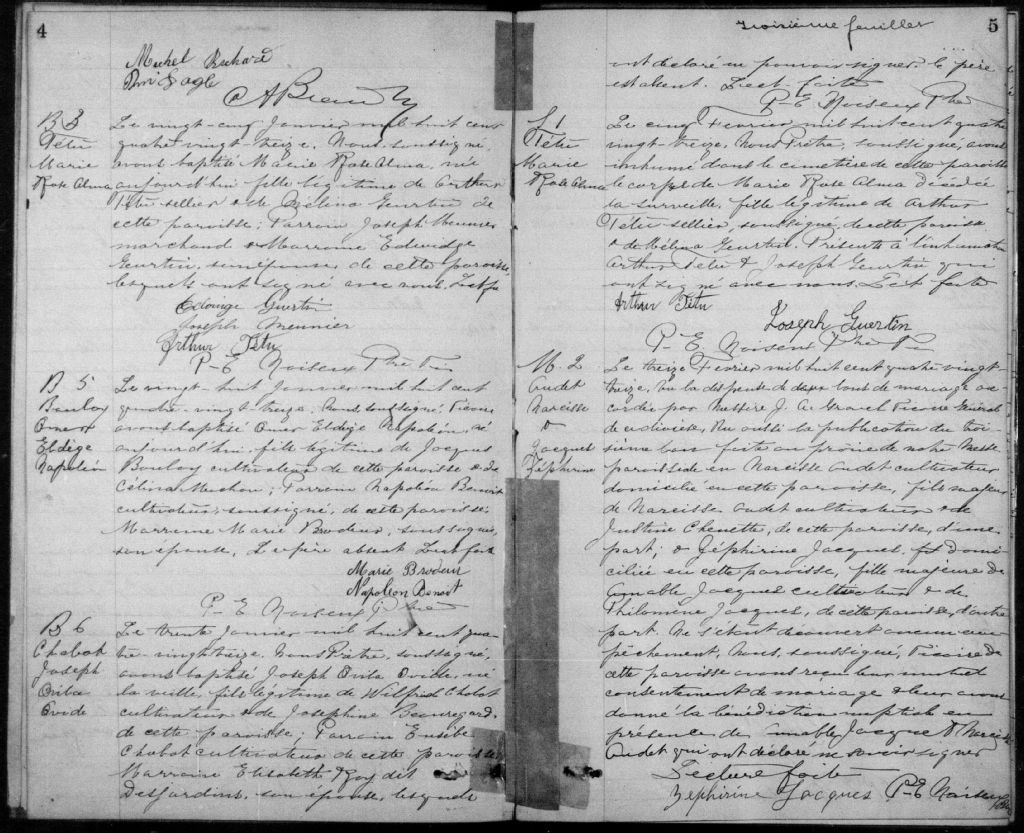 4
Michel Richard
A Beaudry
B 3
Têtu
Marie
Rose Alma
Le vingt-cinq Janvier mil huit cent
quatre vingt-treize. Nous soussigné,
avons baptisé Marie Rose Alma, née
aujourd'hui fille légitime de Arthur
Têtu sellier & de Guertin de
cette paroisse; Parrain Joseph Meunier
marchand & Marraine Edwidge
Guertin, son épouse, de cette paroisse
lesquels ont signé avec nous. Lect fte
Edwige Guertin
Joseph Meunier
Arthur Têtu
P-E Noiseux Ptre
B 5
Bouloy
Omer
Eldige
Napoléon
Le vingt-huit Janvier mil huit cent
quatre-vingt treize, nous soussigné, Vicaire
avons baptisé Omer Eldige Napoléon, né
aujourd'hui, fils légitime de Jacques
Bouloy cultivateur de cette paroisse & de
Célina; Parrain Napoléon Benoit
cultivateur, soussigné, de cette paroisse.
Marraine Marie Brodeur, soussignée,
son épouse, Le père absent Lect faite
Marie Brodeur
Napoléon Benoit
P-E Noiseux Ptre
B 6
Chabot
Joseph
Ovila
Ovide
Le trente Janvier mil huit cent qua
tre-vingt treize. Nous Prêtre, soussigné,
avons baptisé Joseph Ovila Ovide, né
la veille, fils légitime de Wilfrid Chabot
cultivateur & de Josephine Beauregard,
de cette paroisse; Parrain Eusèbe
Chabot cultivateur de cette paroisse
Marraine Elisabeth Roy dit
Desjardins, son épouse, lesquels
Troisième feuillet
5
ont déclaré ne pouvoir signer le père
est absent. Lect. faite
P-E Noiseux Ptre
S 1
Têtu
Marie
Rose Alma
Le cinq Fevrier mil huit cent quatre
vingt-treize. Nous Prêtre, soussigné, avons
inhumé dans le cimetière de cette paroisse
le corps de Marie Rose Alma décédée
la surveille, fille légitime de Arthur
Têtu sellier, soussigné, de cette paroisse
& de Guertin. Présents à l'inhumation
Arthur Têtu & Joseph Guertin qui
ont signé avec nous. Lect faite
Arthur Têtu
Joseph Guertin
P-E Noiseux Ptre
M. 2
Audet
Narcisse
&
Jacques
Zéphirine
Le treize Fevrier mil huit cent quatre vingt-
treize, Vu la dispense de deux bans de mariage ac
cordée par Messire J. A. Gravel Vicaire Général
de ce diocèse, Vu aussi la publication du troi
sième ban faite au prône de notre Messe
paroissiale en Narcisse Audet cultivateur
domicilié en cette paroisse, fils majeur
de Narcisse Audet cultivateur & de
Justine Chenette, de cette paroisse, d'une
part; & Zéphirine Jacques, domi-
ciliée en cette paroisse, fille majeure de
Amable Jacques cultivateur & de
Philomène Jacques, de cette paroisse, d'autre
part. Ne s'étant découvert aucun em
pêchement, Nous, soussigné, Vicaire de
cette paroisse avons reçu leur mutuel
consentement de mariage & leur avons
donné la bénédiction nuptiale en
présence de Amable Jacques & Narcisse
Audet qui ont déclaré ne savoir signer
Lecture faite
Zephirine Jacques P-E Noiseux Ptre